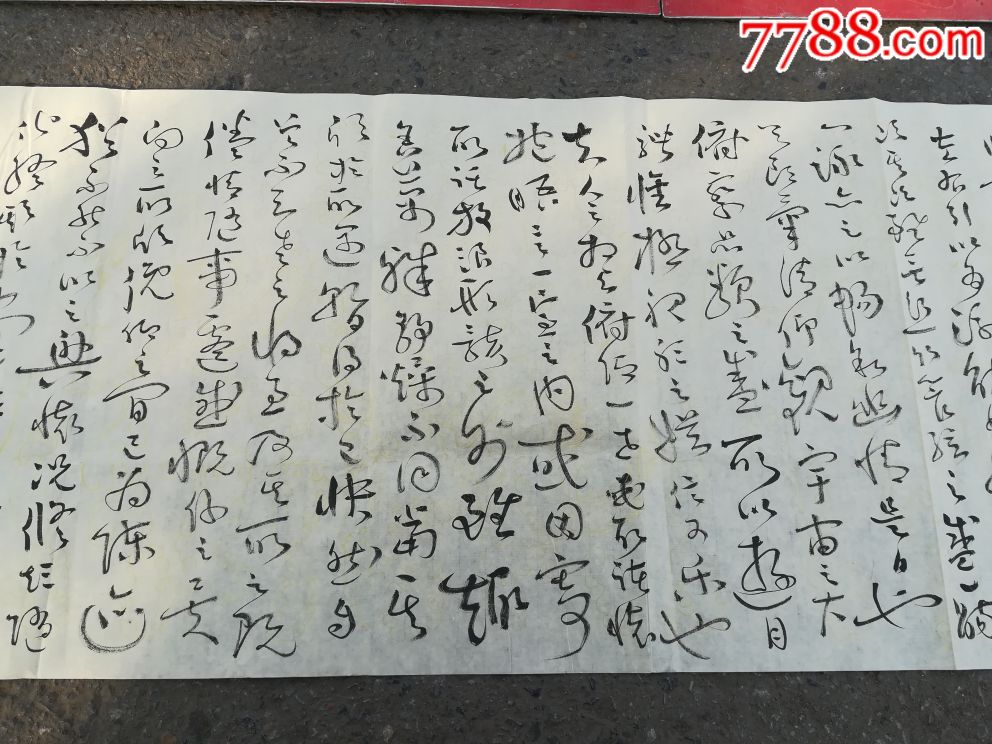 7788.com
左右引以為流觴
其次雖無絲竹管絃之盛一觴
一詠亦足以暢敘幽情是日也
天朗氣清仰觀宇宙之大
俯察品類之盛所以遊目
騁懷極視聽之娛信可樂也
夫人之相與俯仰一世或取諸懷
抱晤言一室之內或因寄
所託放浪形骸之外雖趣
舍萬殊靜躁不同當其
欣於所遇暫得於己快然自
足不知老之將至及其所之既
倦情隨事遷感慨係之矣
向之所欣俛仰之間已為陳迹
猶不能不以之興懷況修短隨
化終期於